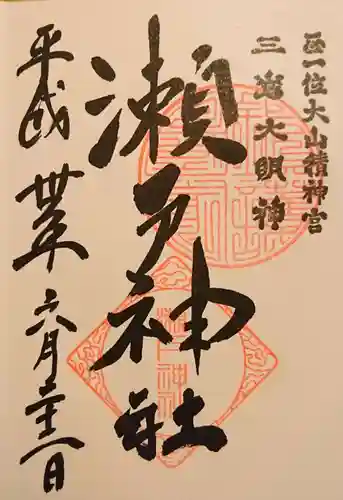 正一位大山積神宮
三嶌大明神
瀬戸神社
平成丗年六月二十一日